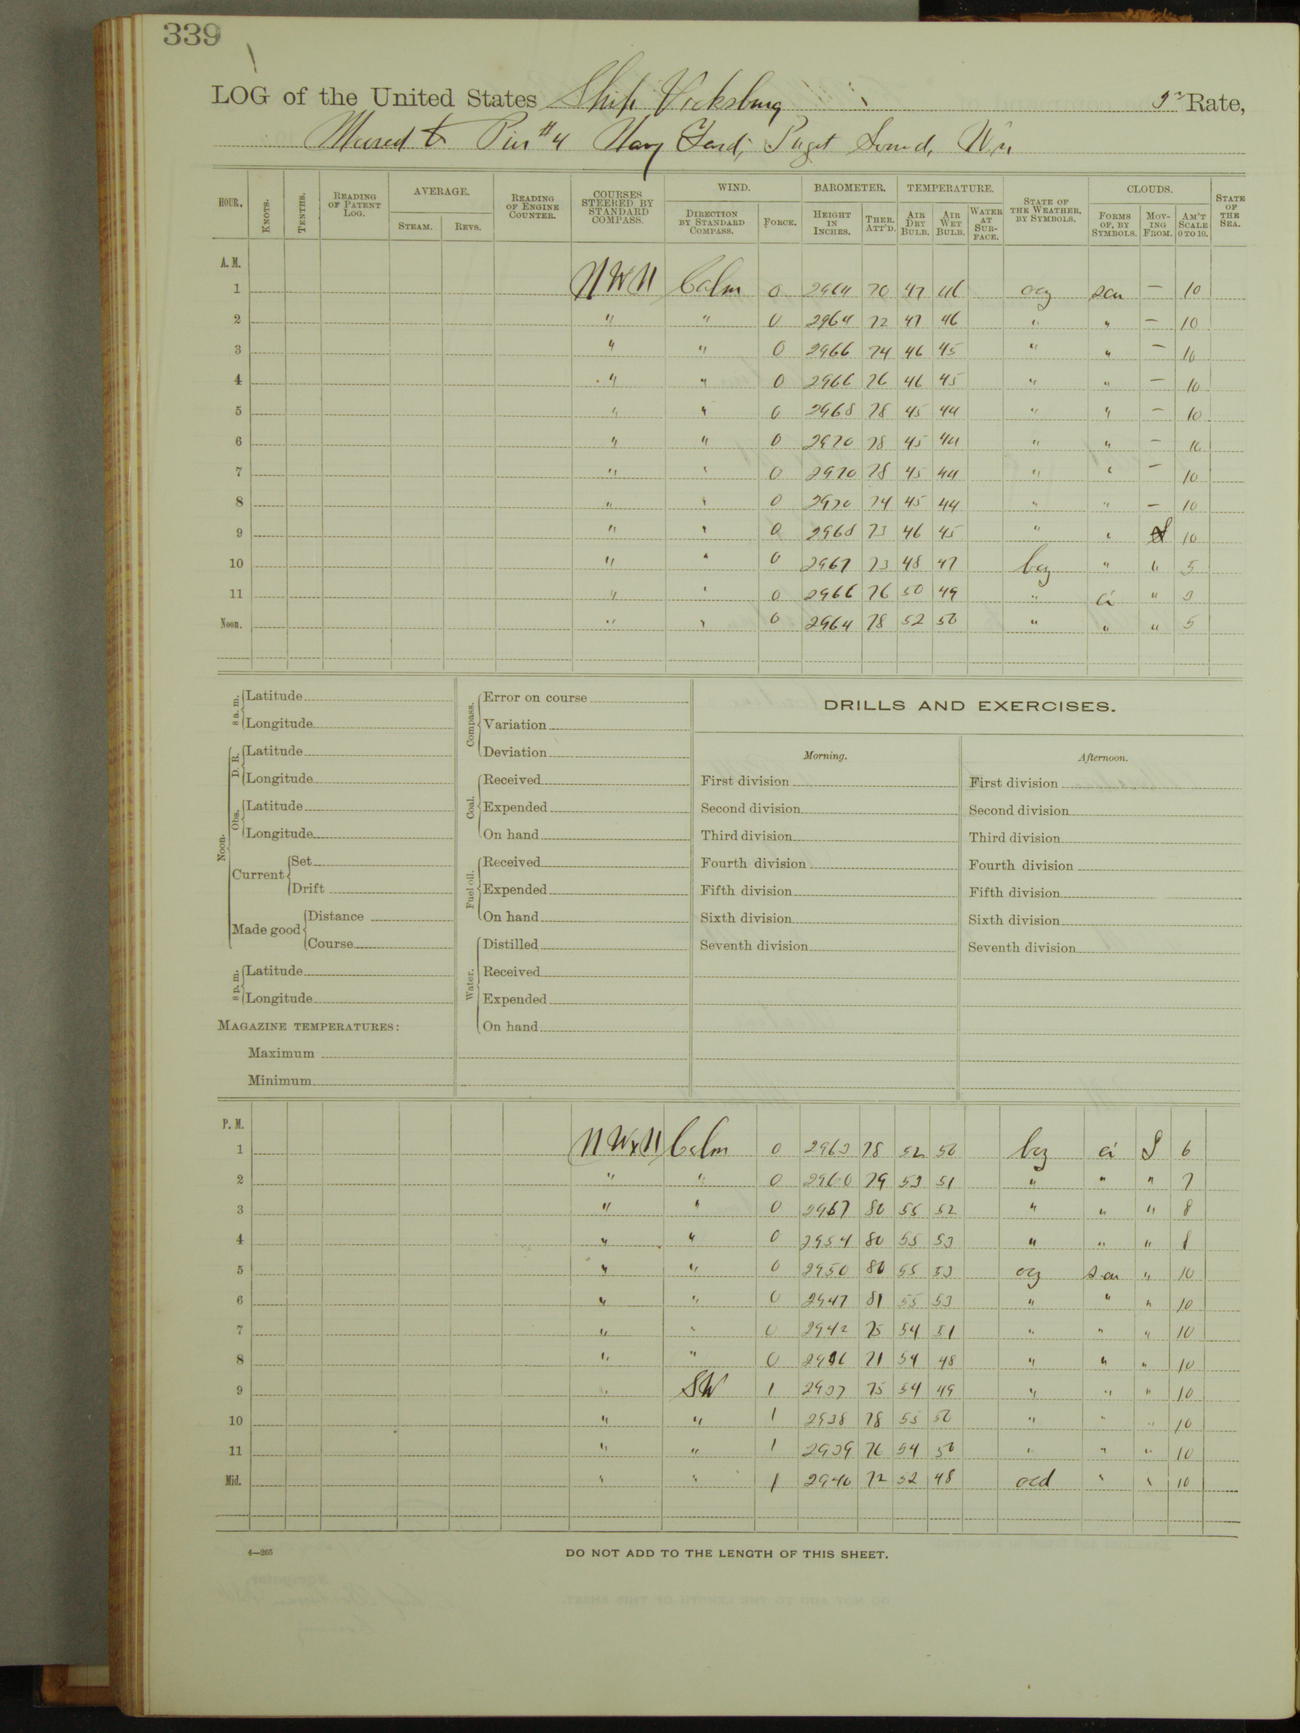 339
LOG of the United States Ship Vicksburg Rate,
Moored to Pier #4 Navy Yard, Puget Sound, Wn
HOUR. KNOTS. TENTHS. READING OF PATENT LOG. AVERAGE. STEAM. REVS. READING OF ENGINE COUNTER. COURSES STEERED BY STANDARD COMPASS. WIND. DIRECTION BY STANDARD COMPASS. FORCE. BAROMETER. HEIGHT IN INCHES. THER. ATT'D. TEMPERATURE. AIR DRY BULB. AIR WET BULB. WATER AT SURFACE. STATE OF THE WEATHER, BY SYMBOLS. CLOUDS. FORMS OF, BY SYMBOLS. MOVING FROM. AM'T SCALE 0 TO 10. STATE OF THE SEA.
A. M.
1 NWxN Calm 0 2964 70 47 46 ocg scu — 10
2 " " 0 2964 72 47 46 " " — 10
3 " " 0 2966 74 46 45 " " — 10
4 " " 0 2966 76 46 45 " " — 10
5 " " 0 2968 78 45 44 " " — 10
6 " " 0 2970 78 45 44 " " — 10
7 " " 0 2970 78 45 44 " " — 10
8 " " 0 2970 74 45 44 " " — 10
9 " " 0 2968 73 46 45 " " S 10
10 " " 0 2967 73 48 47 bcg " " 5
11 " " 0 2966 76 50 49 " ci " 3
Noon. " " 0 2964 78 52 50 " " " 5
8 a. m. Latitude
Longitude
Noon.
D. R. Latitude
Longitude
Obs. Latitude
Longitude
Current Set
Drift
Made good Distance
Course
8 p. m. Latitude
Longitude
MAGAZINE TEMPERATURES:
Maximum
Minimum
Compass. Error on course
Variation
Deviation
Coal. Received
Expended
On hand
Fuel oil. Received
Expended
On hand
Water. Distilled
Received
Expended
On hand
DRILLS AND EXERCISES.
Morning.
First division
Second division
Third division
Fourth division
Fifth division
Sixth division
Seventh division
Afternoon.
First division
Second division
Third division
Fourth division
Fifth division
Sixth division
Seventh division
P. M.
1 NWxN Calm 0 2963 78 52 50 bcg ci S 6
2 " " 0 2960 79 53 51 " " " 7
3 " " 0 2957 80 55 52 " " " 8
4 " " 0 2954 80 55 53 " " " 8
5 " " 0 2950 80 55 53 ocg scu " 10
6 " " 0 2947 81 55 53 " " " 10
7 " " 0 2942 75 54 51 " " " 10
8 " " 0 2936 71 54 48 " " " 10
9 " SW 1 2937 75 54 49 " " " 10
10 " " 1 2938 78 55 50 " " " 10
11 " " 1 2939 76 54 50 " " " 10
Mid. " " 1 2940 72 52 48 ocd " " 10
4—265
DO NOT ADD TO THE LENGTH OF THIS SHEET.